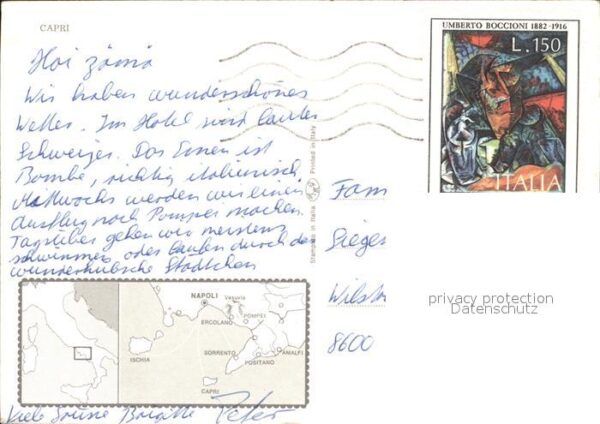 CAPRI
UMBERTO BOCCIONI 1882-1916
L.150
ITALIA
Hoi zämä
Wir haben wunderschönes
Wetter. Im Hotel sind lauter
Schweizer. Das Essen ist
Bombe, richtig italienisch
Mittwochs werden wir einen
Ausflug nach Pompei machen.
Tagsüber gehen wir meistens
schwimmen oder laufen durch das
wunderhübsche Städtchen
Printed in Italy
Stampato in Italia
Fam
Sieger
8600
privacy protection
Datenschutz
NAPOLI
Vesuvio
ERCOLANO
POMPEI
ISCHIA
SORRENTO
AMALFI
POSITANO
CAPRI
Brigitte Peter